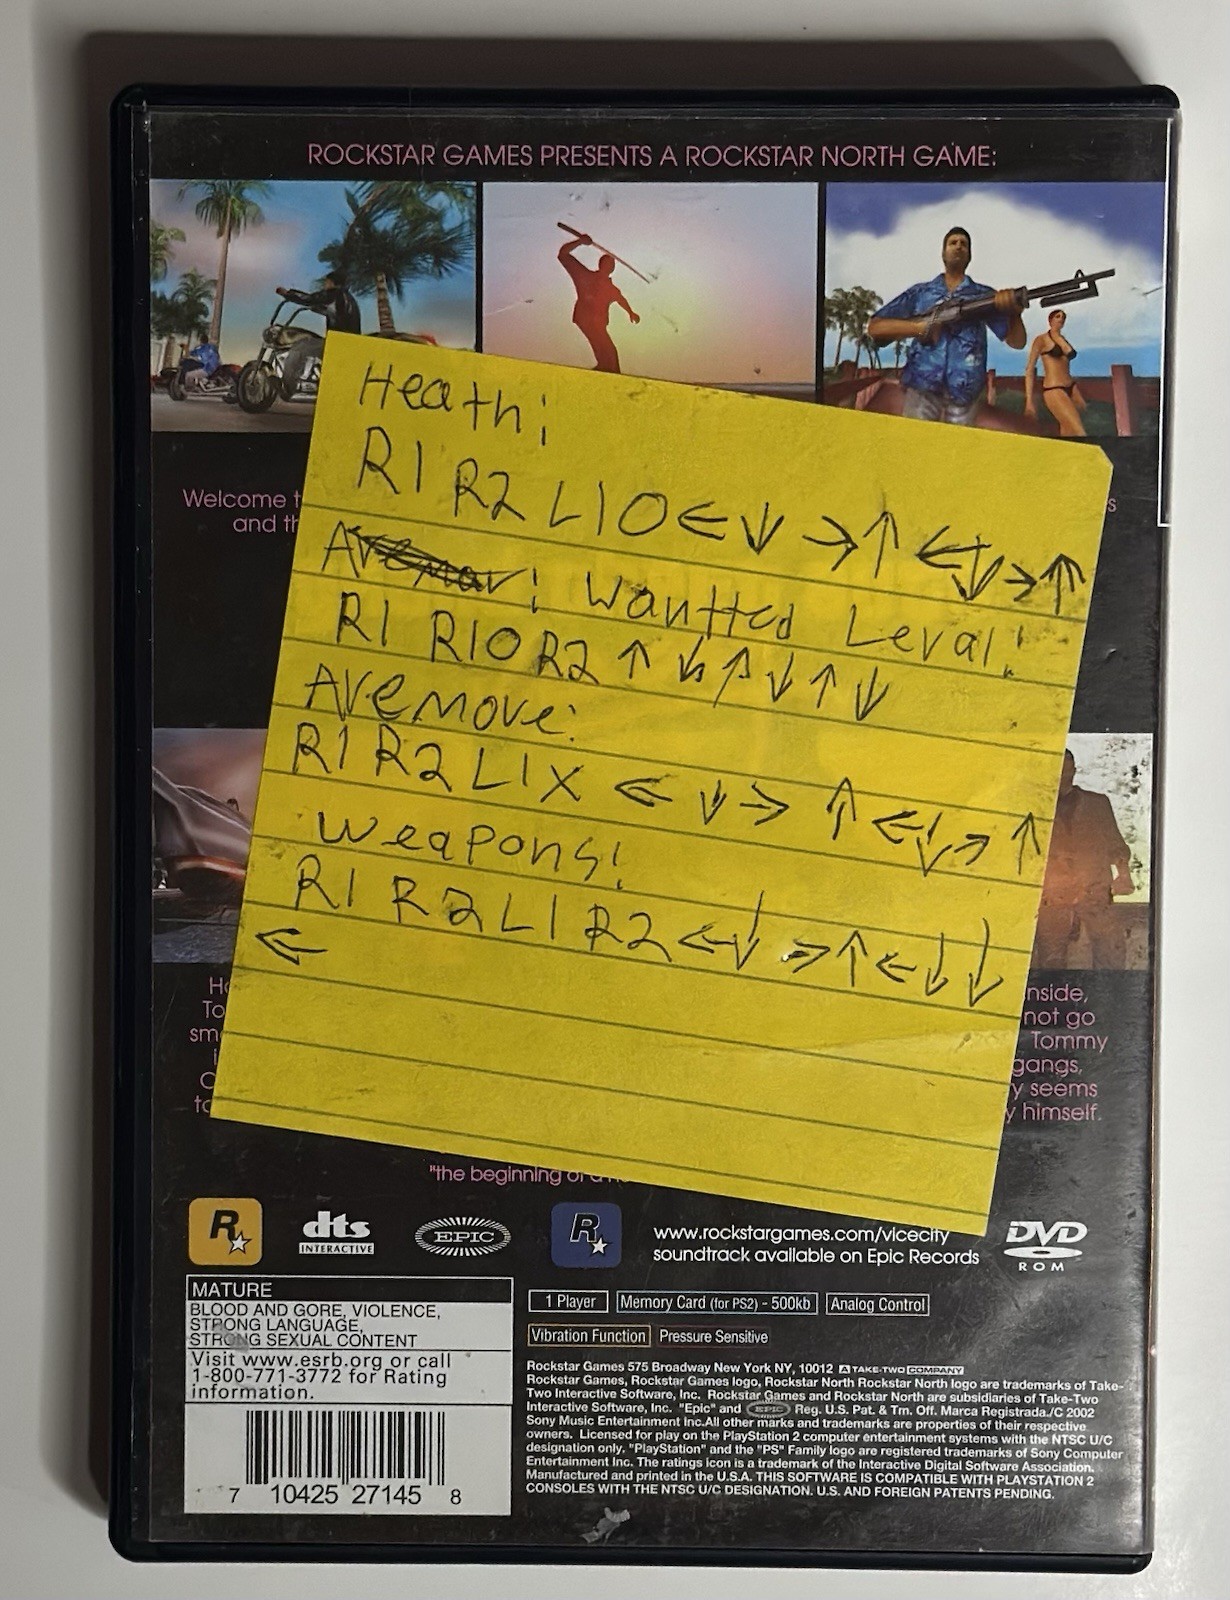 ROCKSTAR GAMES PRESENTS A ROCKSTAR NORTH GAME:
Heath:
R1 R2 L1 O ← ↓ → ↑ ← ↓ → ↑
Welcome
s
and
Wantted Leval:
R1 R1 O R2 ↑ ↓ ↑ ↓ ↑ ↓
Aremove:
R1 R2 L1 X ← ↓ → ↑ ← ↓ → ↑
weapons:
R1 R2 L1 R2 ← ↓ → ↑ ← ↓ ↓
←
nside,
not go
Tommy
gangs,
y seems
y himself.
"the beginning of a
R
dts
INTERACTIVE
EPIC
R
www.rockstargames.com/vicecity
soundtrack available on Epic Records
DVD
ROM
MATURE
BLOOD AND GORE, VIOLENCE,
STRONG LANGUAGE,
STRONG SEXUAL CONTENT
Visit www.esrb.org or call
1-800-771-3772 for Rating
information.
7 10425 27145 8
1 Player Memory Card (for PS2) - 500kb Analog Control
Vibration Function Pressure Sensitive
Rockstar Games 575 Broadway New York NY, 10012 A TAKE-TWO COMPANY
Rockstar Games, Rockstar Games logo, Rockstar North Rockstar North logo are trademarks of Take-
Two Interactive Software, Inc. Rockstar Games and Rockstar North are subsidiaries of Take-Two
Interactive Software, Inc. "Epic" and EPIC Reg. U.S. Pat. & Tm. Off. Marca Registrada./C 2002
Sony Music Entertainment Inc.All other marks and trademarks are properties of their respective
owners. Licensed for play on the PlayStation 2 computer entertainment systems with the NTSC U/C
designation only. "PlayStation" and the "PS" Family logo are registered trademarks of Sony Computer
Entertainment Inc. The ratings icon is a trademark of the Interactive Digital Software Association.
Manufactured and printed in the U.S.A. THIS SOFTWARE IS COMPATIBLE WITH PLAYSTATION 2
CONSOLES WITH THE NTSC U/C DESIGNATION. U.S. AND FOREIGN PATENTS PENDING.